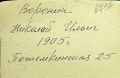 Воронин
Николай Ильич
1905г.
Потемкинская 25